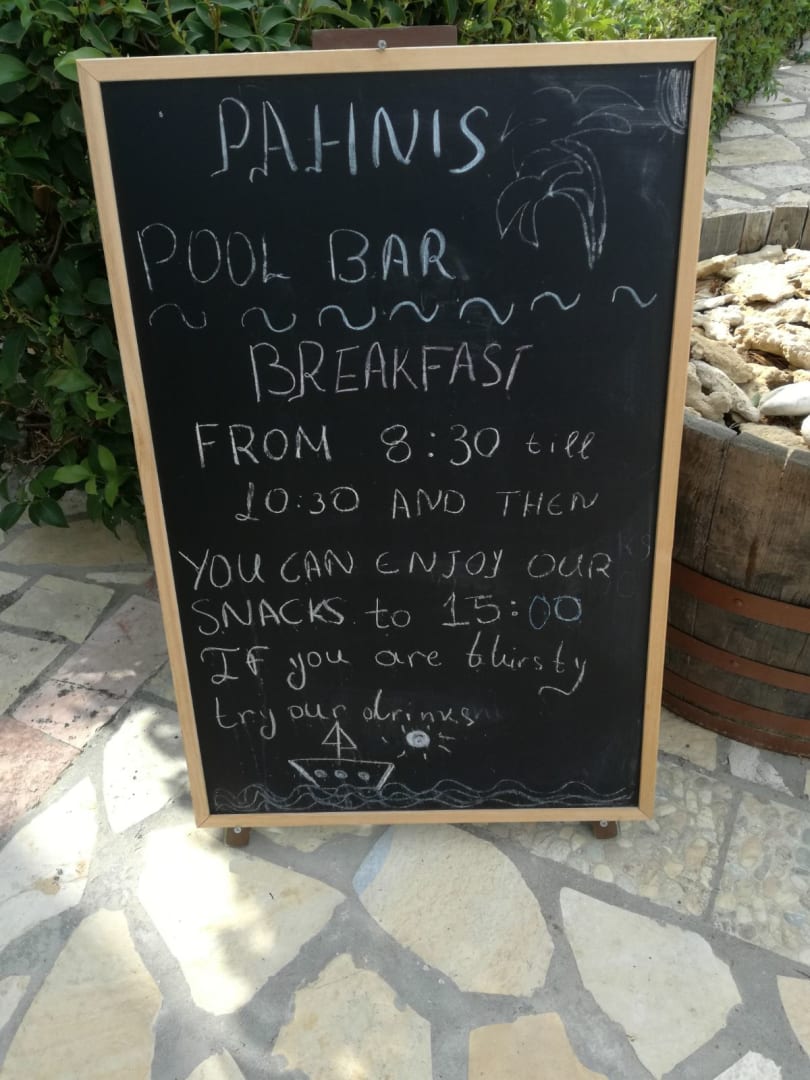 PAHNIS
POOL BAR
BREAKFAST
FROM 8:30 till
10:30 AND THEN
YOU CAN ENJOY OUR
SNACKS to 15:00
If you are thirsty
try our drinks